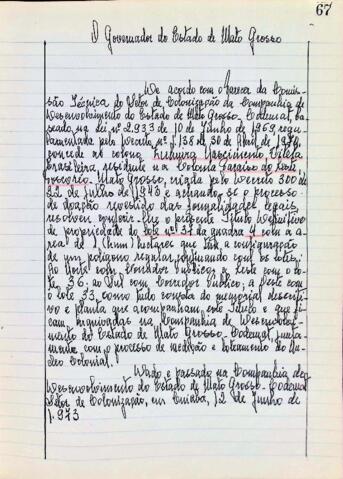 67
O Governador do Estado de Mato Grosso
De acordo com o Parecer da Comis-
são Técnica do Setor de Colonização da Companhia de
Desenvolvimento do Estado de Mato Grosso - Codemat, ba-
seado na lei nº 2.933 de 10 de Junho de 1969, regu-
lamentada pelo Decreto nº 1.138 de 30 de Abril de 1970,
concede ao colono, Nascimento
brasileira, residente na Colonia Paraiso do Leste,
Mato Grosso, criada pelo Decreto 300 de
22 de Julho de 1943 e achando-se o processo
de doação revestido das formalidades legais,
resolveu conferir-lhe o presente Título Definitivo
de propriedade do lote nº 37 da quadra 4 com a á-
rea de 1 (hum) hectares que tem a configuração
de um poligono regular, confinando com os lotes:
Ao Norte com Corredor Publico; a Leste com o lo-
te, 36. ao Sul com Corredor Publico, a Oeste com
o lote 33, como tudo consta do memorial descriti-
vo e planta que acompanham este Título e que fi-
cam arquivadas na Companhia de Desenvolvi-
mento do Estado de Mato Grosso - Codemat, junta-
mente com o processo de medição e loteamento do Nu-
cleo Colonial.
Dado e passado na Companhia de
Desenvolvimento do Estado de Mato Grosso - Codemat
Setor de Colonização, em Cuiabá, 12 de Junho de
1.973